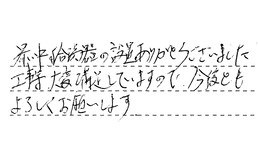 給湯器の設置ありがとうございました
工事大変満足していますので今後とも
よろしくお願いします